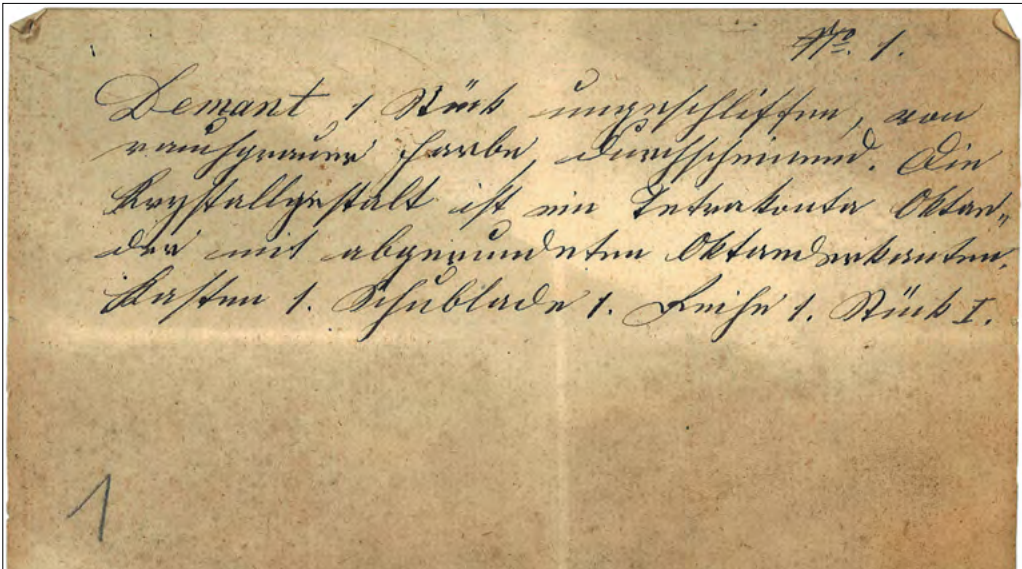 No. 1.
Demant 1 Stück ungeschliffen, von
rauchgrauer Farbe, durchscheinend. Die
Krystallgestalt ist ein Tetrakonta Oktae„
der mit abgerundeten Oktaederkanten.
Kasten 1. Schublade 1. Reihe 1. Stück I.
1